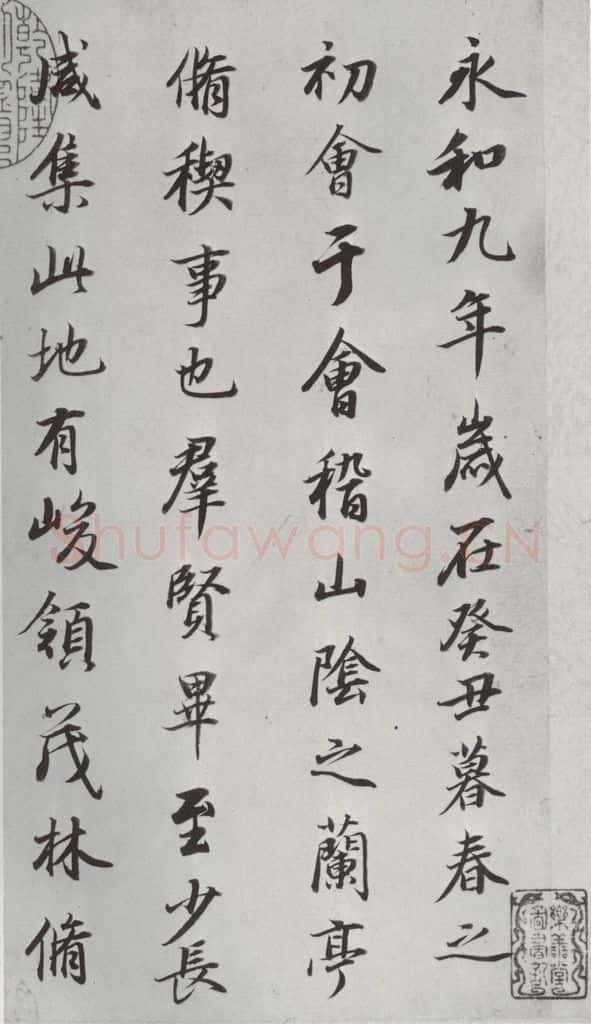 永和九年歲在癸丑暮春之
初會于會稽山陰之蘭亭
脩稧事也羣賢畢至少長
咸集此地有峻領茂林脩
樂善堂
圖書記
Shufawang.CN